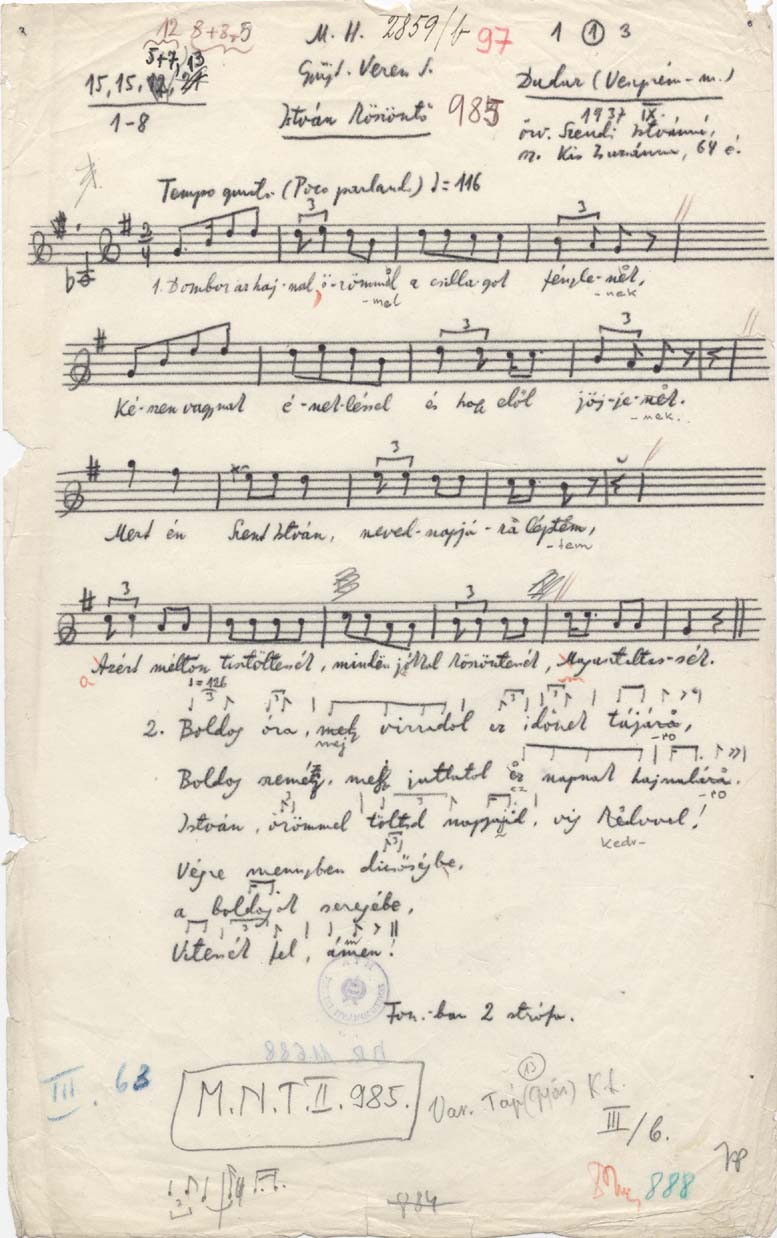 12 8+8,5
M. H. 2859/b 97
1 1 3
5+7, 13
15, 15,
1-8
Gyűjt. Veress S.
István köszöntő 985
Dudar (Veszprém-m.)
1937 IX.
özv. Szendi Istvánné,
sz. Kis Zsuzsánna, 64 é.
Tempo giusto (Poco parlando) = 116
3 3
2 4
1. Dombor az haj-nal, ö-römmel a csilla-got fényle-nek,
-mel -nek
3 3
Ké-szen vagynak é-nek-léssel és hogy elől jöj-je-nek.
-nek.
3
Mert én Szent István, neved-napjá-ra léptem,
-tem
3 3
Azért méltón tisztöllenek, mindën jókkal köszöntenek,
a
= 126
2. Boldog óra, mely virradol ez időnek tájára,
mej -ro
Boldog személy, mely juttatol ez napnak hajnalára.
ez -ro
István, örömmel töltsd napjajid, víg kedvvel!
kedv-
Végre mennyben dicsőségbe,
a boldogok seregébe,
Vitessék fel, ámen!
Fon.-ban 2 strófa.
III. 63
M.N.T. II. 985.
13
Var. Táp (Győr) K.f.
III/6.
888
884